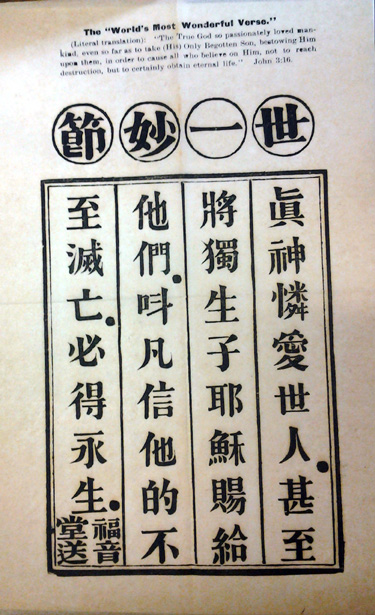 The "World's Most Wonderful Verse."
(Literal translation): "The True God so passionately loved man-
kind, even so far as to take (His) Only Begotten Son, bestowing Him
upon them, in order to cause all who believe on Him, not to reach
destruction, but to certainly obtain eternal life." John 3:16.
世一妙節
眞神憐愛世人。甚至
將獨生子耶穌賜給
他們。呌凡信他的不
至滅亡。必得永生。
福音
堂送